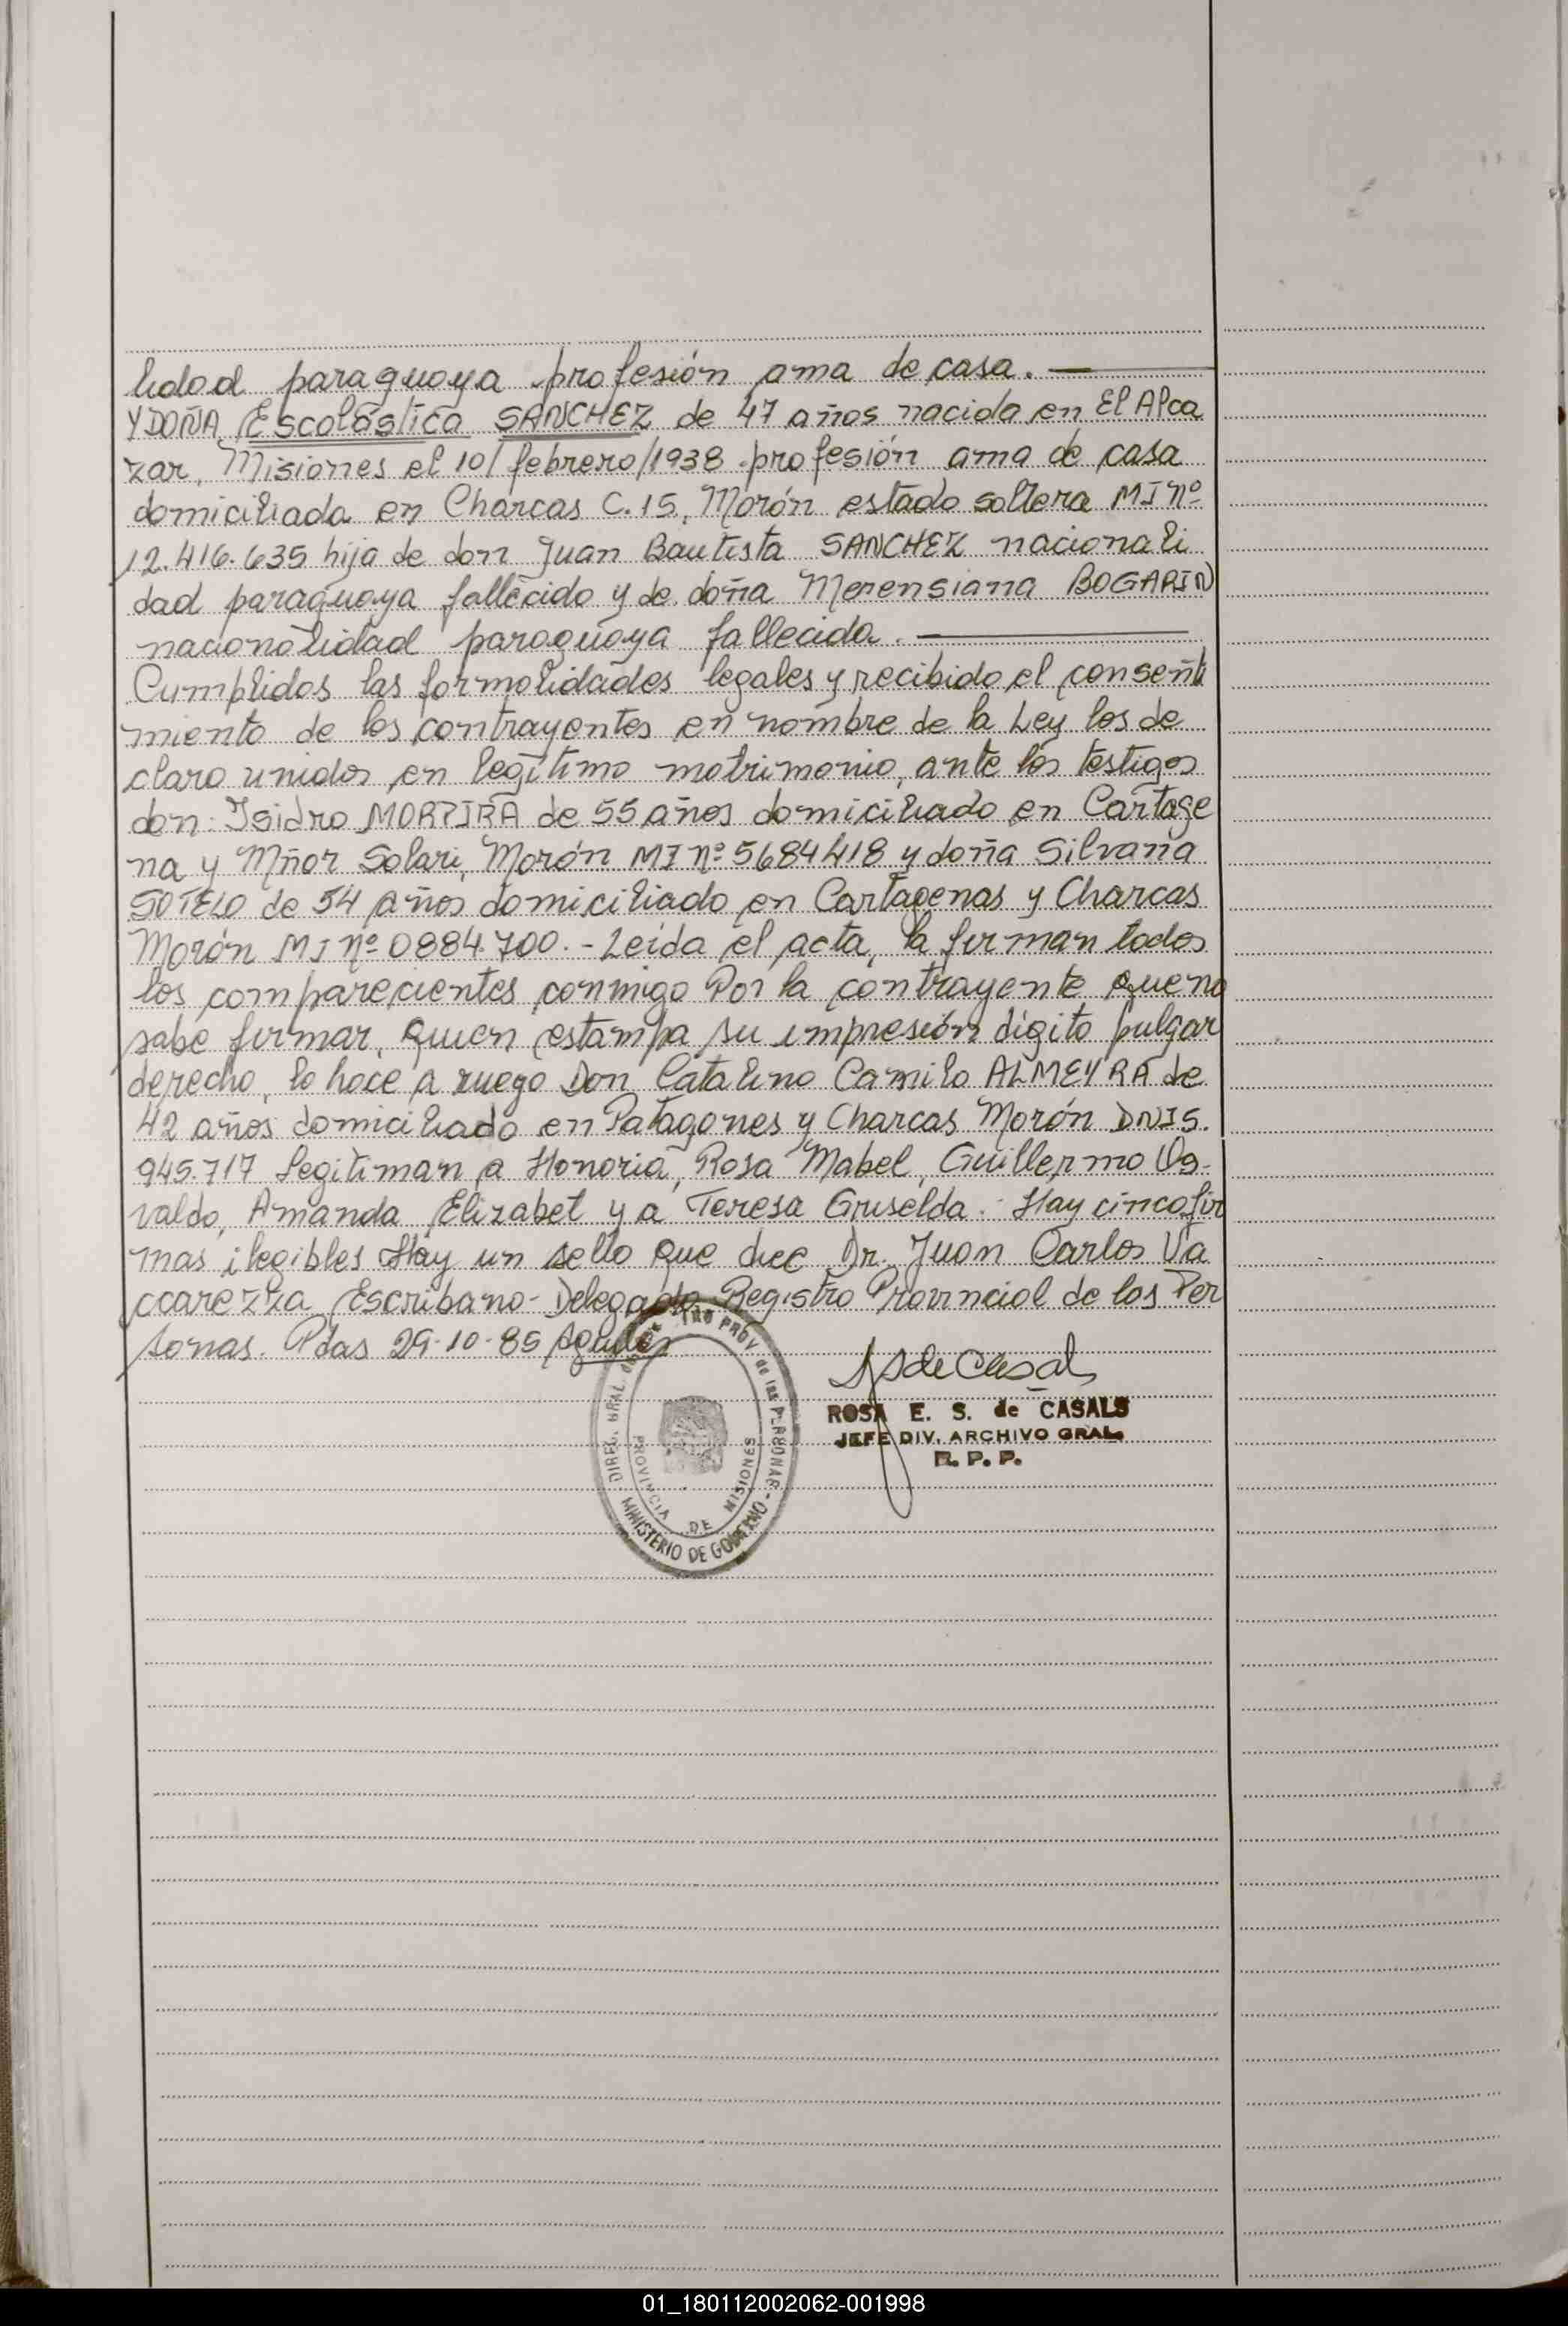 lidad paraguaya profesión ama de casa.
Y DOÑA Escolástica SANCHEZ de 47 años nacida en El Alca
zar, Misiones el 10/febrero/1938 profesión ama de casa
domiciliada en Charcas C.15, Morón estado soltera MI nº
12.416.635 hija de don Juan Bautista SANCHEZ nacionali
dad paraguaya fallecido y de doña Merensiana BOGARIN
nacionalidad paraguaya fallecida.
Cumplidos las formalidades legales y recibido el consenti
miento de los contrayentes en nombre de la Ley los de
claro unidos en legítimo matrimonio, ante los testigos
don Isidro de 55 años domiciliado en Cartage
na y Mñor Solari, Morón MI nº 5684418 y doña Silvana
SOTELO de 54 años domiciliado en Cartagenas y Charcas
Morón MI nº 0884.700.- Leida el acta, la firman todos
los comparecientes conmigo Por la contrayente que no
sabe firmar, quien estampa su impresión dígito pulgar
derecho, lo hace a ruego Don Catalino Camilo ALMEYRA de
42 años domiciliado en Patagones y Charcas Morón DNI 5.
945.717 Legitiman a Honoria, Rosa Mabel, Guillermo Os-
valdo, Amanda Elizabet y a Teresa Griselda.- Hay cinco fir
mas ilegibles Hay un sello que dice Dr. Juan Carlos Va
ccarezza Escribano- Delegado Registro Provincial de los Per
sonas. Pdas 29-10-85
ROSA E. S. de CASALS
JEFE DIV. ARCHIVO GRAL.
R. P. P.
PROV de las PERSONAS
MINISTERIO DE GOBIERNO
PROVINCIA DE MISIONES
01_180112002062-001998